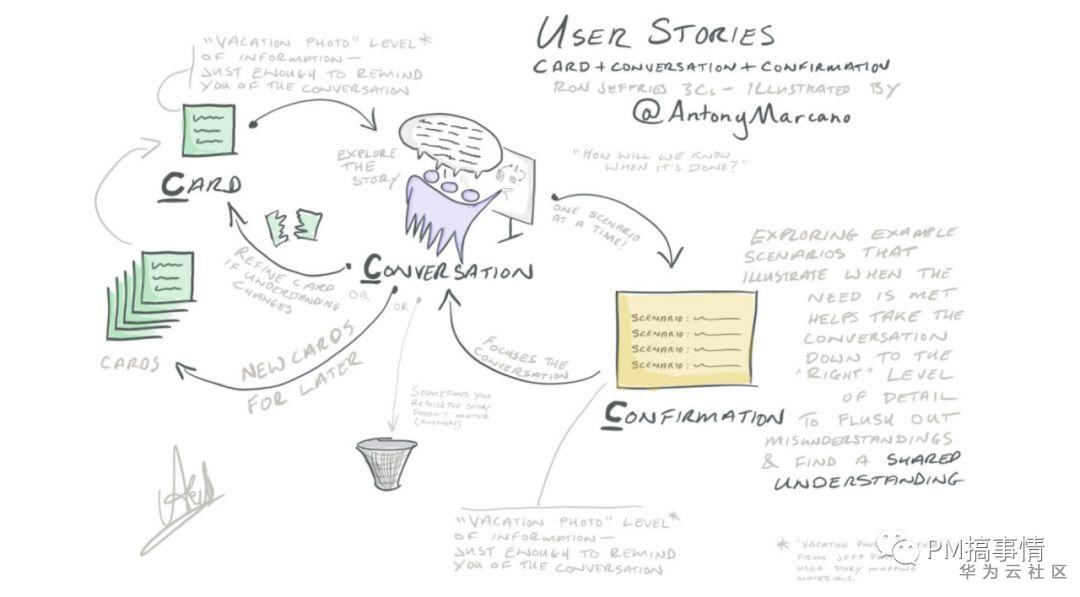 USER STORIES
CARD + CONVERSATION + CONFIRMATION
RON JEFFRIES 3CS - ILLUSTRATED BY
@AntonyMarcano
"VACATION PHOTO" LEVEL*
OF INFORMATION —
JUST ENOUGH TO REMIND
YOU OF THE CONVERSATION
CARD
EXPLORE
THE
STORY
"HOW WILL WE KNOW
WHEN IT'S DONE?"
ONE SCENARIO
AT A TIME!
CONVERSATION
REFINE CARD
IF UNDERSTANDING
CHANGES
OR
OR
CARDS
NEW CARDS
FOR LATER
SOMETIMES YOU
REALISE THE STORY
DOESN'T MATTER
(ANYMORE)
FOCUSES THE
CONVERSATION
SCENARIO:
SCENARIO:
SCENARIO:
SCENARIO:
CONFIRMATION
EXPLORING EXAMPLE
SCENARIOS THAT
ILLUSTRATE WHEN THE
NEED IS MET
HELPS TAKE THE
CONVERSATION
DOWN TO THE
"RIGHT" LEVEL
OF DETAIL
TO FLUSH OUT
MISUNDERSTANDINGS
& FIND A SHARED
UNDERSTANDING
"VACATION PHOTO" LEVEL*
OF INFORMATION —
JUST ENOUGH TO REMIND
YOU OF THE CONVERSATION
* "VACATION
FROM JEFF
USER STORY MAPPING
MATERIALS.
PM搞事情
华为云社区